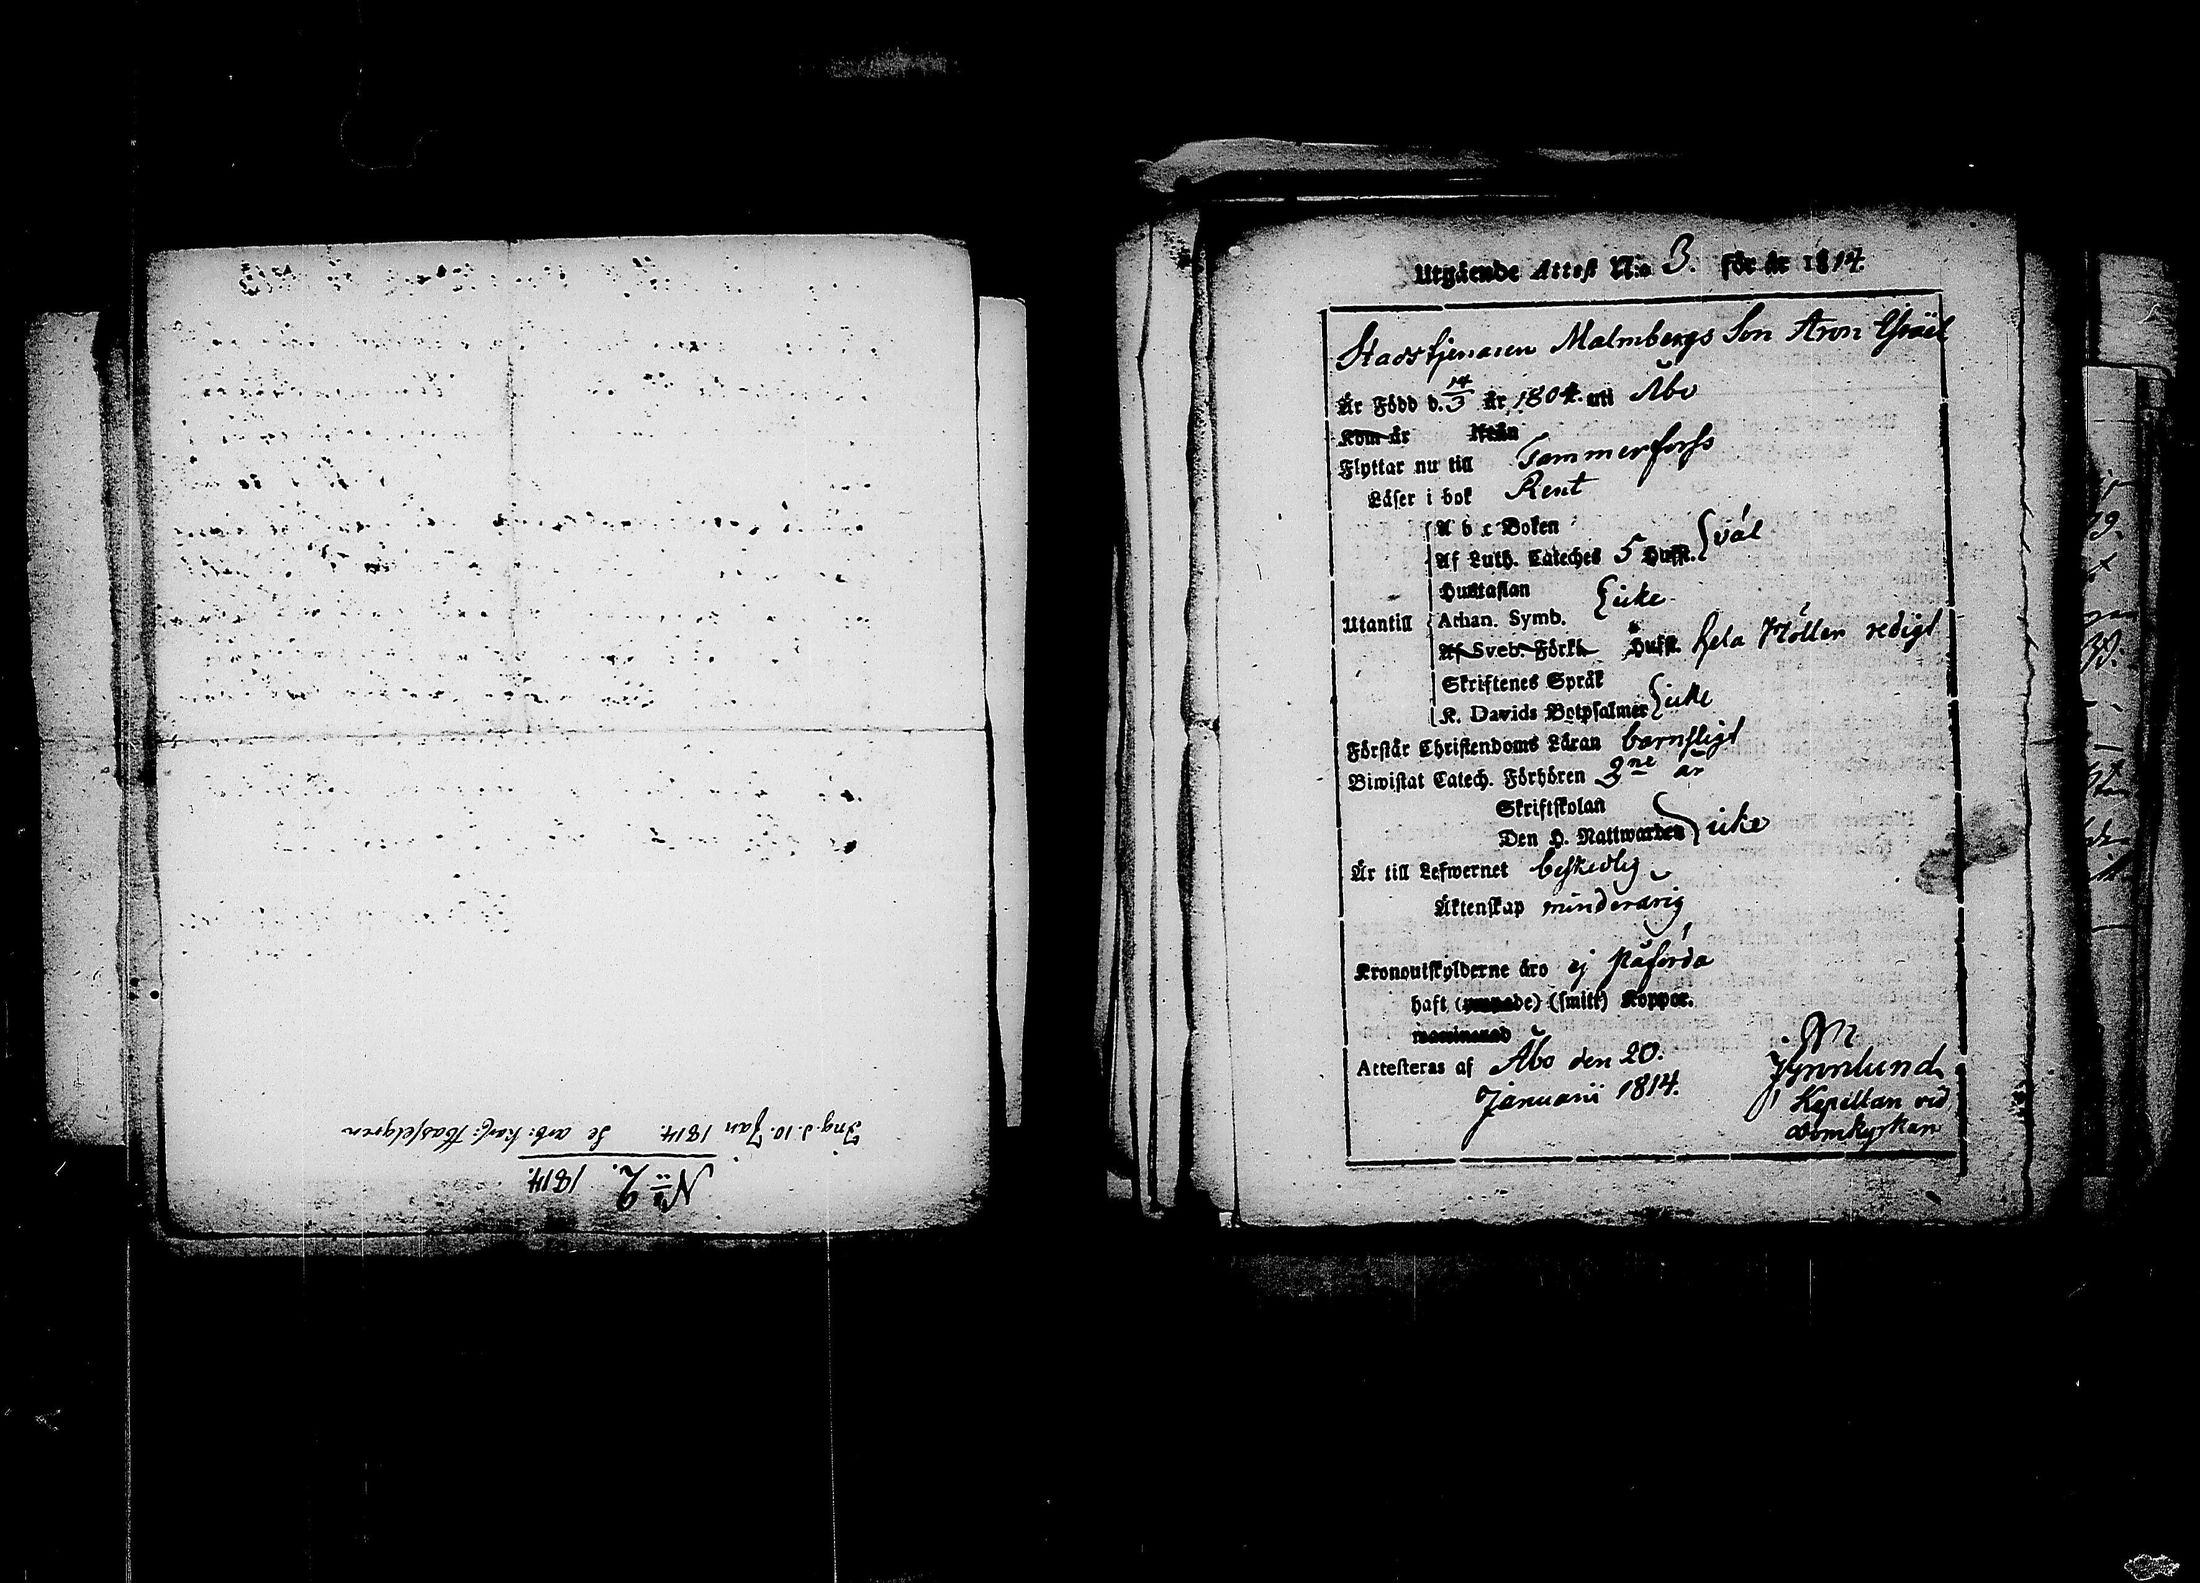 Ing. d. 10. Jan 1814. Se arb: karl: Hasselgren
No 2. 1814.
Utgående Attest N:o 3. För år 1814.
Stadstjenaren Malmbergs Son Aron Israël
Är Född d. 14/3 år 1804. uti Åbo
Kom år ifrån
Flyttar nu till Tammerforss
Läser i bok Rent
A b c Boken
Af Luth. Cateches 5 Hufst. väl
Hustaflan
Utantill Athan. Symb. icke
Af Sveb. Förkl. Hufst. hela Möller redigt
Skriftenes Språk
K. Davids Botpsalmer icke
Förstår Christendoms Läran barnsligt
Biwistat Catech. Förhören 2ne år
Skriftskolan
Den H. Nattwarden icke
Är till Lefwernet beskedlig
Äktenskap minderårig
Kronoutskylderne äro ej påförda
haft (smitt) Koppor.
Attesteras af Åbo den 20.
Januarii 1814.
Gm
Kapellan vid
Domkyrkan